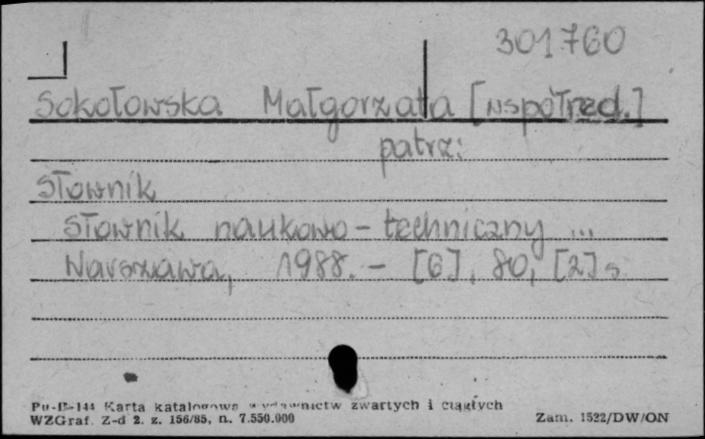 301760
Sokołowska Małgorzata [współred.]
patrz:
Słownik
Słownik naukowo-techniczny ...
Warszawa, 1988. - [6], 80, [2] s
Pu-B-144 Karta katalogowa wydawnictw zwartych i ciągłych
WZGraf. Z-d 2. z. 156/85, n. 7.550.000 Zam. 1522/DW/ON